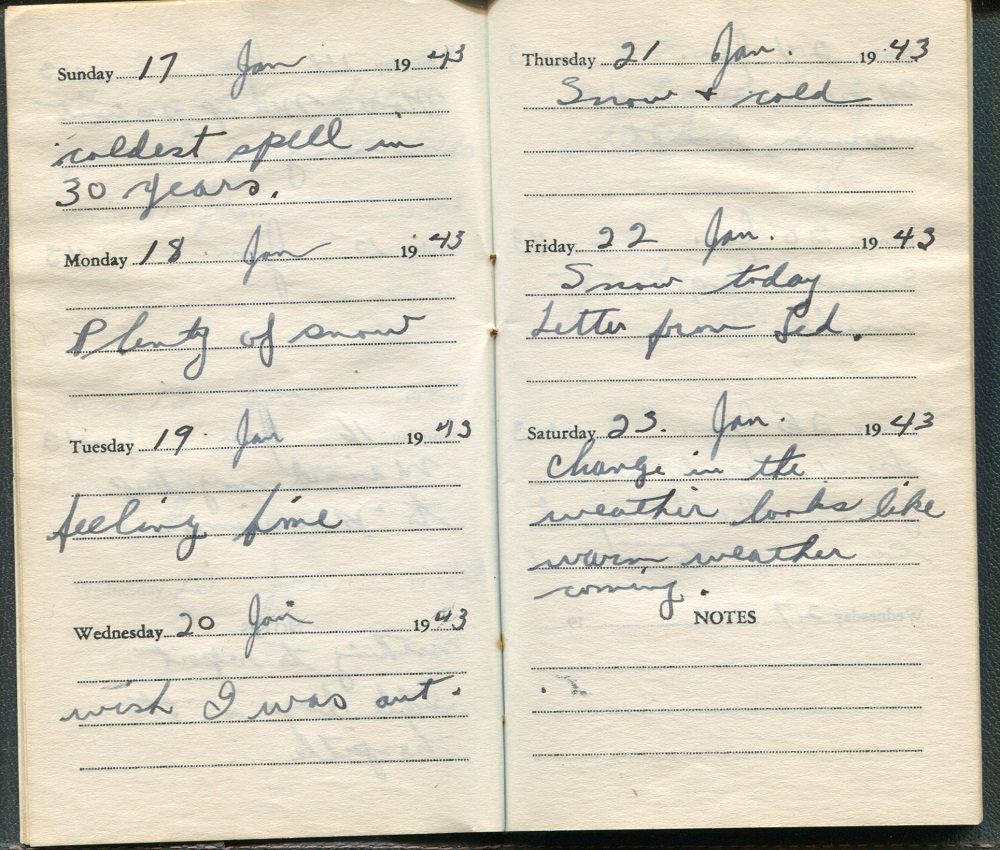 Sunday 17 Jan 1943
coldest spell in
30 years.
Monday 18 Jan 1943
Plenty of snow
Tuesday 19 Jan 1943
feeling fine
Wednesday 20 Jan 1943
wish I was out.
Thursday 21 Jan. 1943
Snow + cold
Friday 22 Jan. 1943
Snow today
Letter from Sid.
Saturday 23. Jan. 1943
Change in the
weather looks like
warm weather
coming.
NOTES